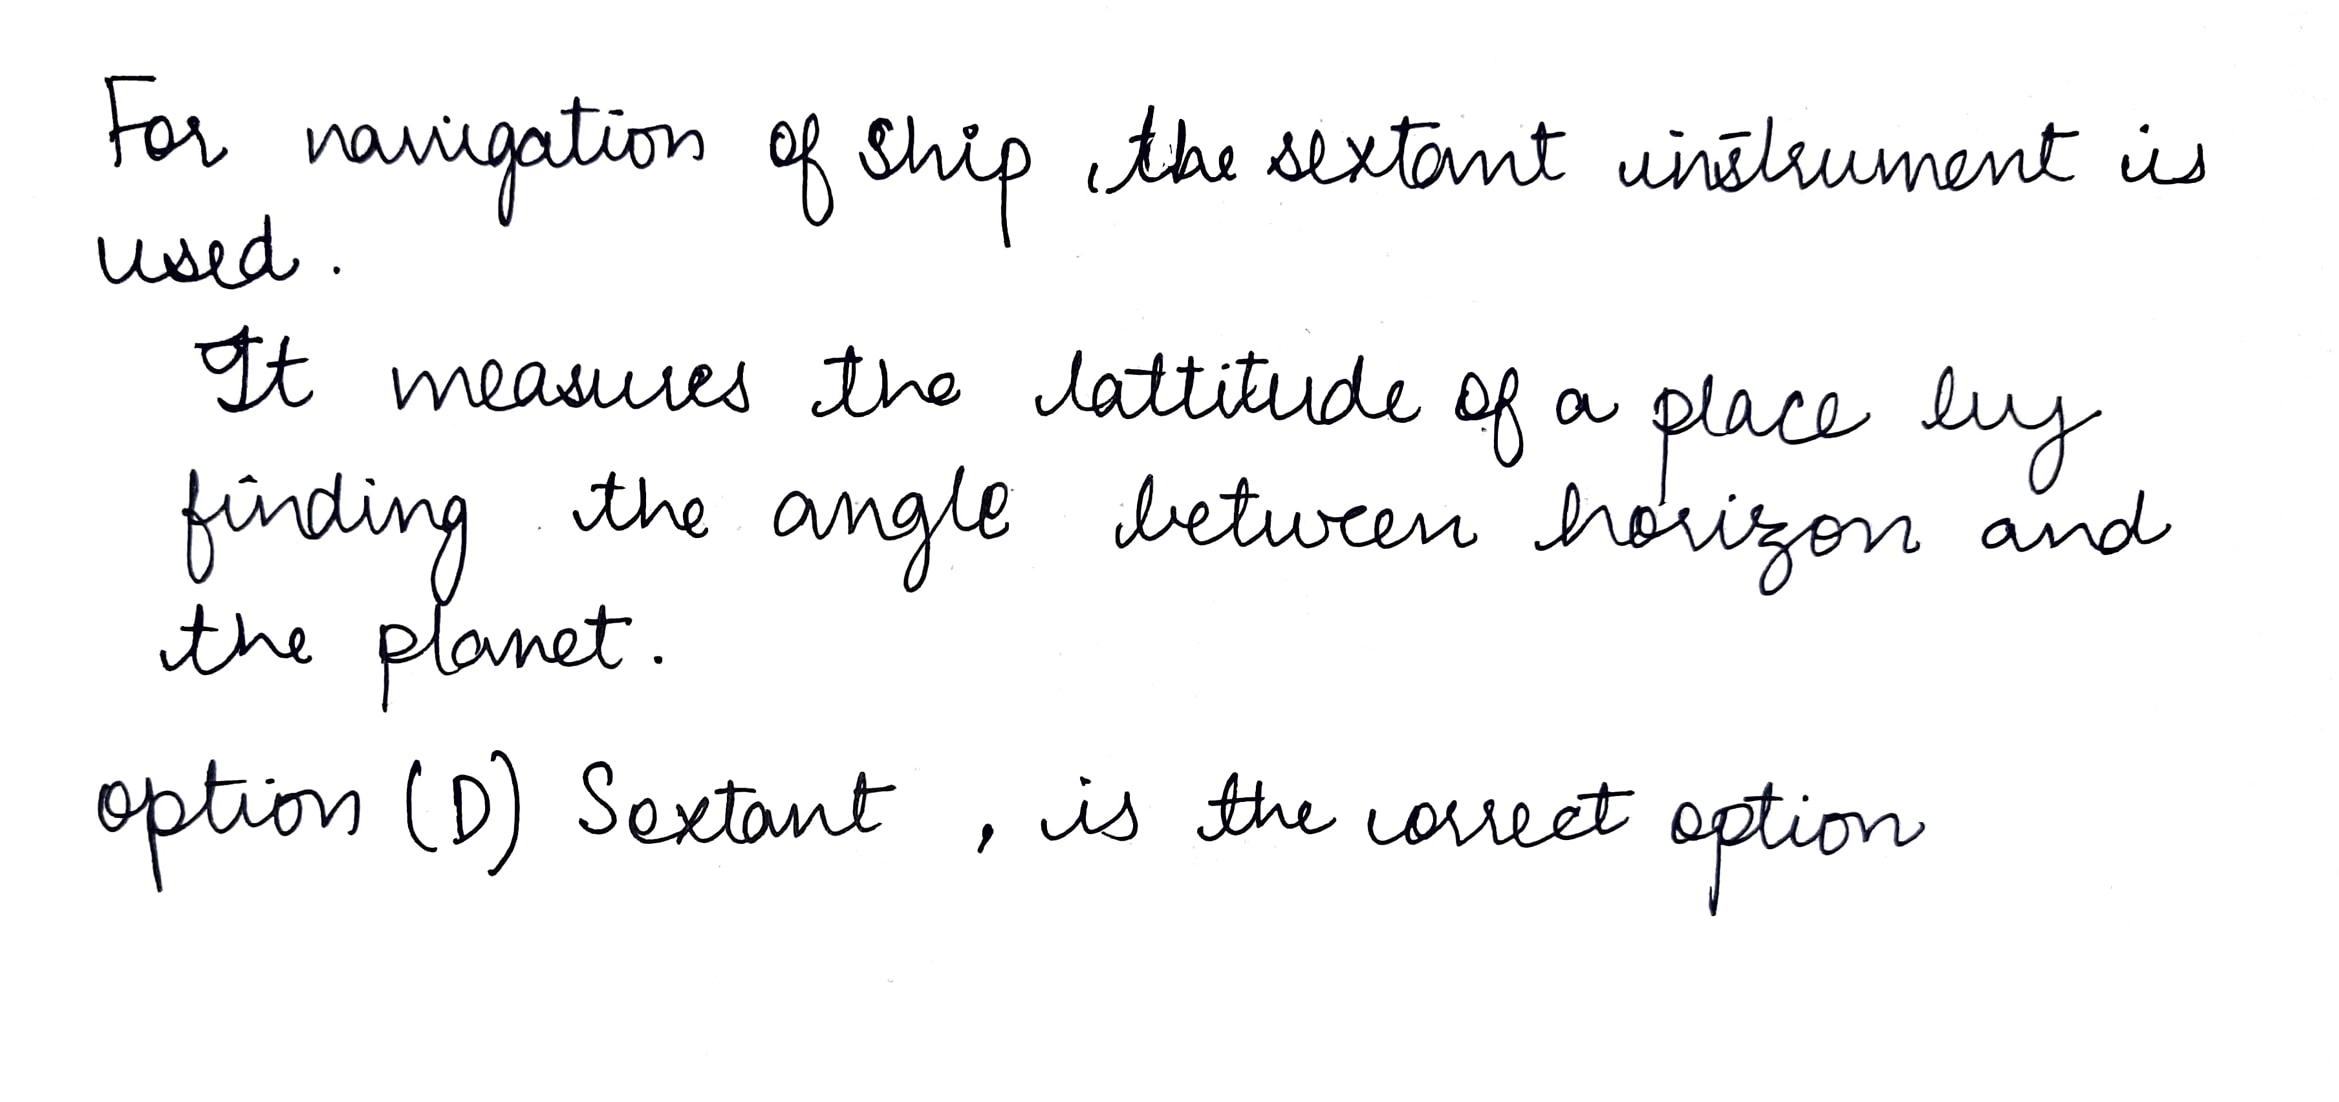 For navigation of ship, the sextant instrument is
used.
It measures the lattitude of a place by
finding the angle between horizon and
the planet.
option (D) Sextant , is the correct option